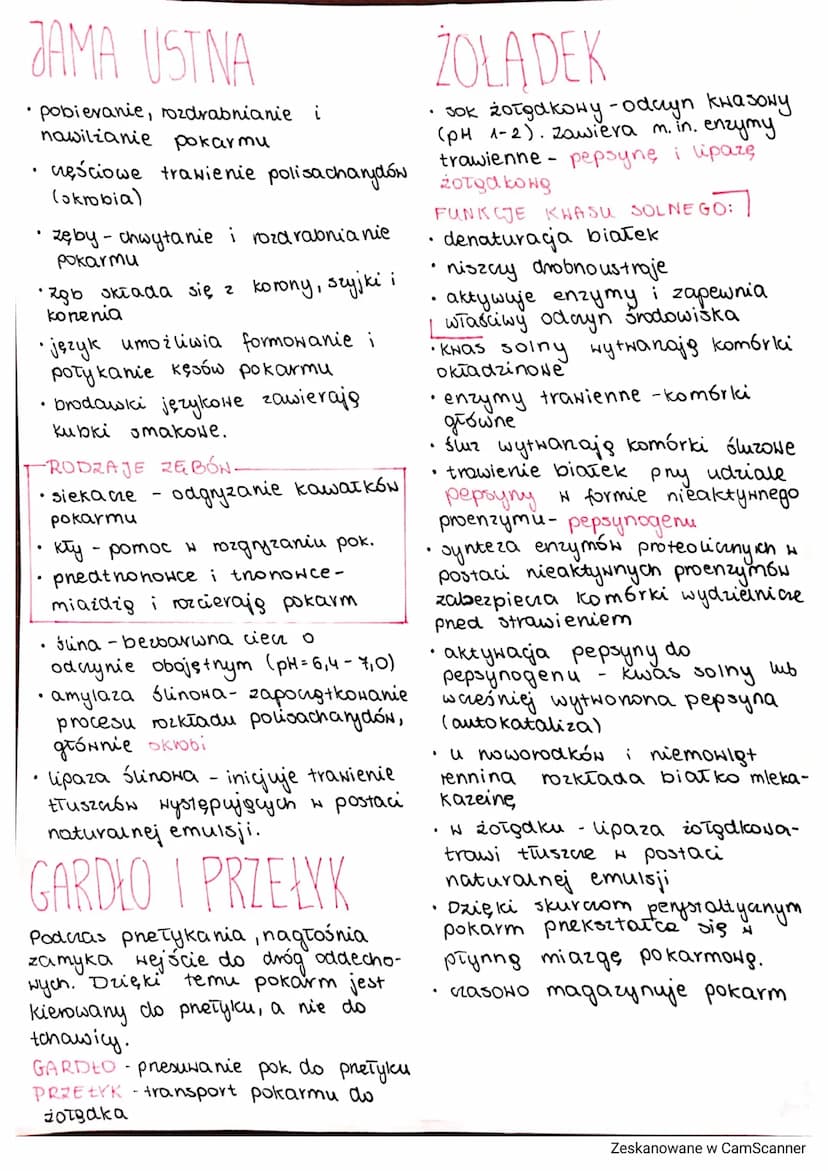 JAMA USTNA
• pobieranie, rozdrabnianie i
nawilżanie pokarmu
• częściowe trawienie polisacharydów
(skrobia)
• zęby - chwytanie i rozdrabnianie
pokarmu
• ząb składa się z korony, szyjki i
korzenia
• język umożliwia formowanie i
połykanie kęsów pokarmu
• brodawki językowe zawierają
kubki smakowe.
RODZAJE ZĘBÓW
• siekacze - odgryzanie kawałków
pokarmu
• kły - pomoc w rozgryzaniu pok.
• przedtrzonowce i trzonowce -
miażdżą i rozcierają pokarm
• ślina - bezbarwna ciecz o
odczynie obojętnym (pH = 6,4 - 7,0)
• amylaza ślinowa - zapoczątkowanie
procesu rozkładu polisacharydów,
głównie skrobi
• lipaza ślinowa - inicjuje trawienie
tłuszczów występujących w postaci
naturalnej emulsji.
GARDŁO I PRZEŁYK
Podczas przełykania, nagłośnia
zamyka wejście do dróg oddecho-
wych. Dzięki temu pokarm jest
kierowany do przełyku, a nie do
tchawicy.
GARDŁO - przesuwanie pok. do przełyku
PRZEŁYK - transport pokarmu do
żołądka
ŻOŁĄDEK
• sok żołądkowy - odczyn kwasowy
(pH 1-2). Zawiera m.in. enzymy
trawienne - pepsynę i lipazę
żołądkową
FUNKCJE KWASU SOLNEGO:
• denaturacja białek
• niszczy drobnoustroje
• aktywuje enzymy i zapewnia
właściwy odczyn środowiska
• kwas solny wytwarzają komórki
okładzinowe
• enzymy trawienne - komórki
główne
• śluz wytwarzają komórki śluzowe
• trawienie białek przy udziale
pepsyny w formie nieaktywnego
proenzymu - pepsynogenu
• synteza enzymów proteolicznych w
postaci nieaktywnych proenzymów
zabezpiecza komórki wydzielnicze
przed strawieniem
• aktywacja pepsyny do
pepsynogenu - kwas solny lub
wcześniej wytworzona pepsyna
(autokataliza)
• u noworodków i niemowląt
rennina rozkłada białko mleka -
kazeinę
• w żołądku - lipaza żołądkowa -
trawi tłuszcze w postaci
naturalnej emulsji
• Dzięki skurczom perystaltycznym
pokarm przekształca się w
płynną miazgę pokarmową.
• czasowo magazynuje pokarm
Zeskanowane w CamScanner